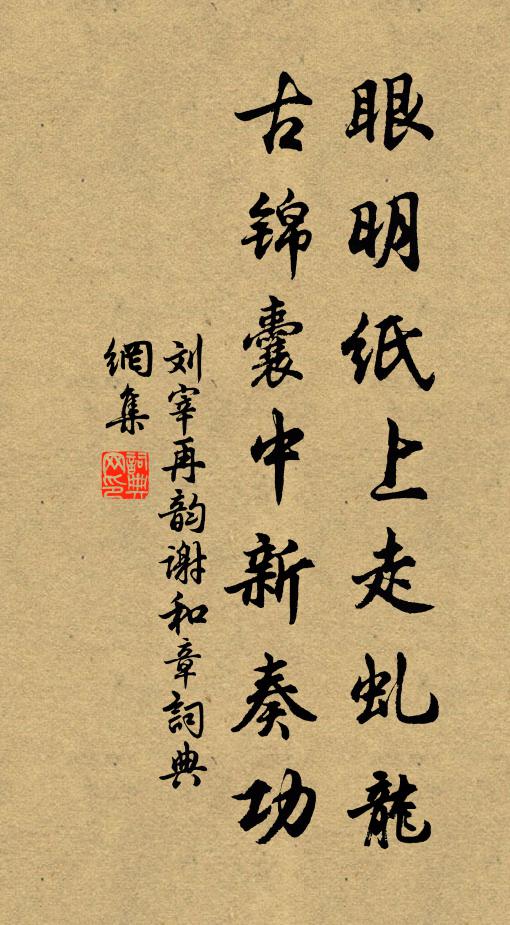 眼明纸上走虬龍
古锦囊中新奏功
刘宰再韵谢和章詞典
網集
詞典網印